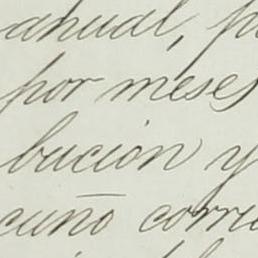 anual, p
por meses
bucion y
cuño corri